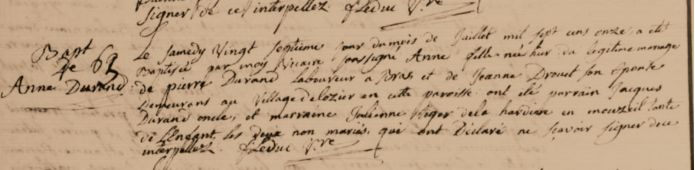 signer de ce interpellez Leduc V.re
Bapt
de 63
Anne Durand
Le samedy Vingt septieme jour du mois de Juillet mil sept cens onze a eté
Baptisée par moy Vicaire soussigné Anne fille née hier du legitime mariage
de pierre Durand Laboureur a Bras et de Jeanne Drouet son Epouse
demeurans au Village en cette paroisse ont eté parrain Jacques
Durand oncle, et marraine Julienne de la hardiere en mouzeil tante
de L'enfant, les deux non mariés, qui ont Declaré ne sçavoir signer de ce
interpellez Leduc V.re